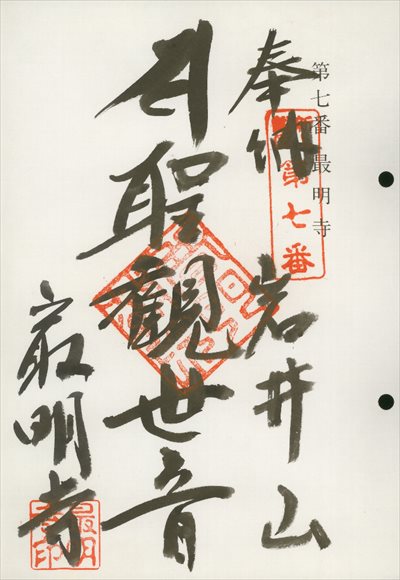 第七番 最明寺
奉納 岩井山
第七番
聖観世音
最明寺
最明寺印